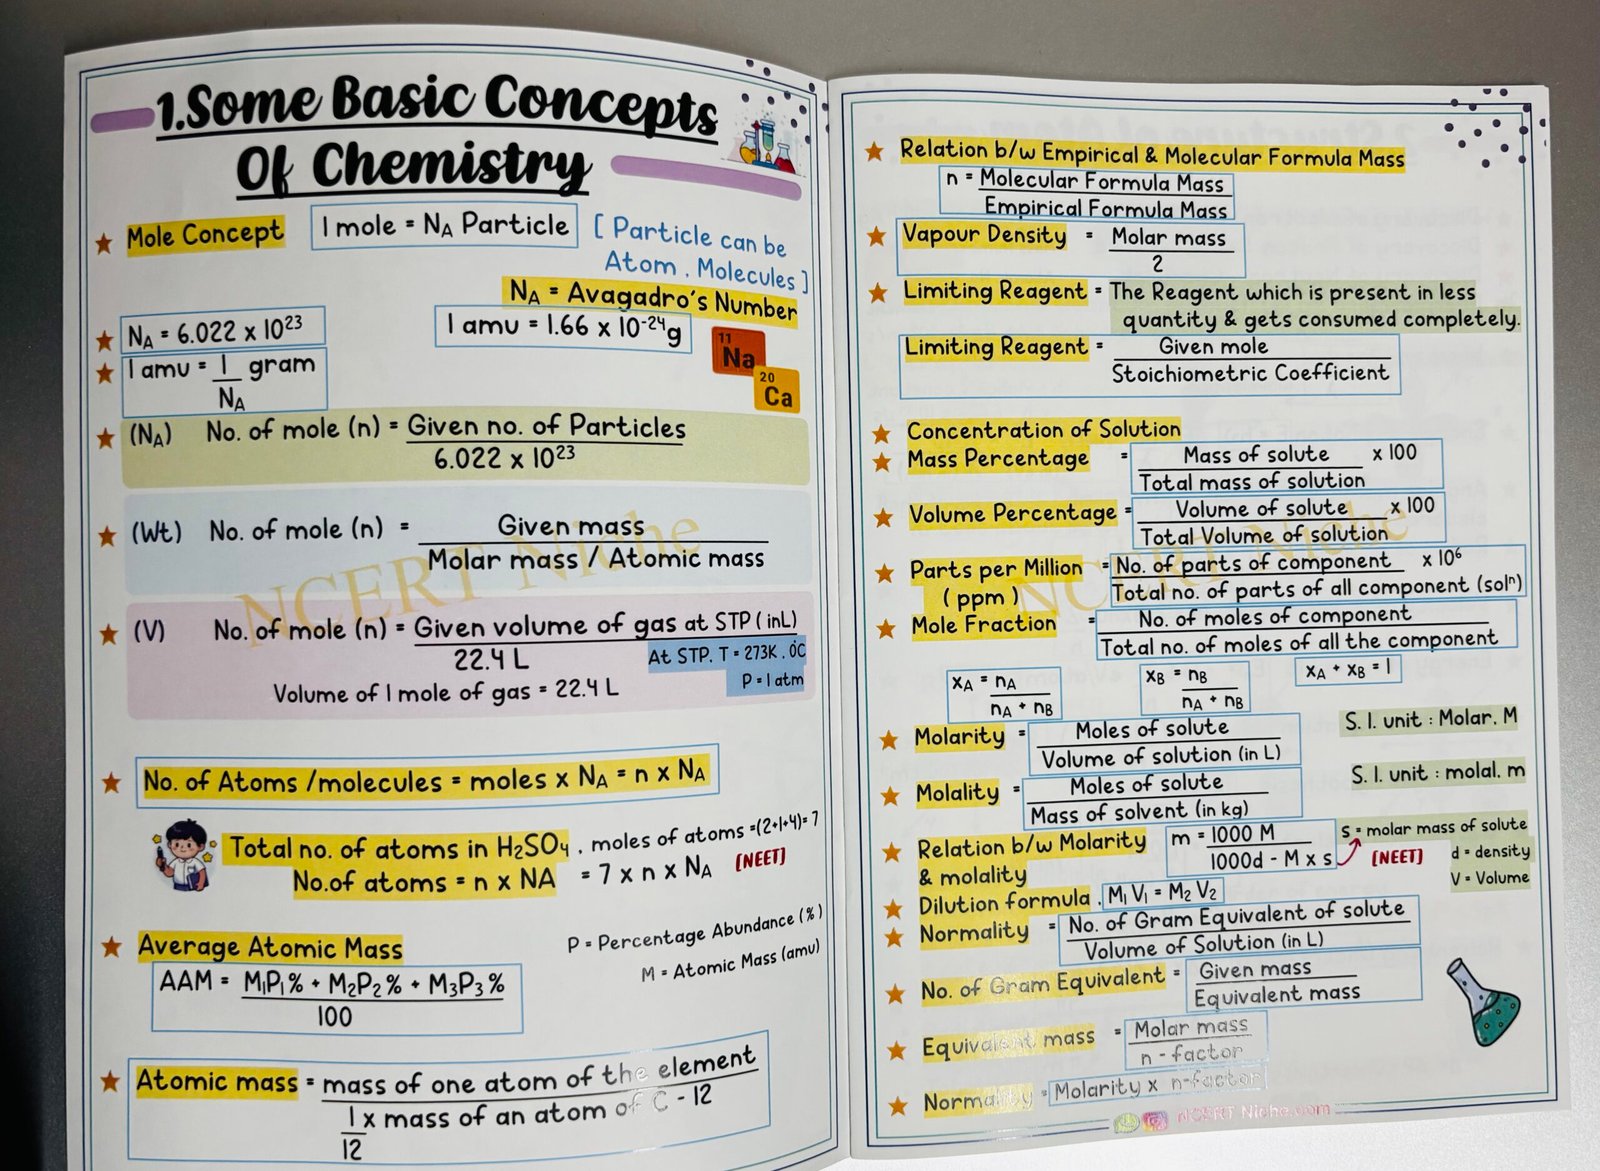 1.Some Basic Concepts
Of Chemistry
★ Mole Concept 1 mole = N_A Particle [ Particle can be
Atom , Molecules ]
N_A = Avagadro's Number
★ N_A = 6.022 x 10²³ 1 amu = 1.66 x 10⁻²⁴g
★ 1 amu = 1/N_A gram
11
Na
20
Ca
★ (N_A) No. of mole (n) = Given no. of Particles
6.022 x 10²³
★ (Wt) No. of mole (n) = Given mass
Molar mass / Atomic mass
★ (V) No. of mole (n) = Given volume of gas at STP ( inL)
22.4 L
At STP, T = 273K , 0°C
P = 1 atm
Volume of 1 mole of gas = 22.4 L
★ No. of Atoms /molecules = moles x N_A = n x N_A
Total no. of atoms in H₂SO₄ , moles of atoms =(2+1+4)= 7
No.of atoms = n x NA = 7 x n x N_A [NEET]
★ Average Atomic Mass
P = Percentage Abundance (%)
M = Atomic Mass (amu)
AAM = M₁P₁% + M₂P₂% + M₃P₃%
100
★ Atomic mass = mass of one atom of the element
1/12 x mass of an atom of C - 12
NCERT Niche
★ Relation b/w Empirical & Molecular Formula Mass
n = Molecular Formula Mass
Empirical Formula Mass
★ Vapour Density = Molar mass
2
★ Limiting Reagent = The Reagent which is present in less
quantity & gets consumed completely.
Limiting Reagent = Given mole
Stoichiometric Coefficient
★ Concentration of Solution
★ Mass Percentage = Mass of solute x 100
Total mass of solution
★ Volume Percentage = Volume of solute x 100
Total Volume of solution
★ Parts per Million = No. of parts of component x 10⁶
( ppm ) Total no. of parts of all component (solⁿ)
★ Mole Fraction = No. of moles of component
Total no. of moles of all the component
x_A = n_A x_B = n_B x_A + x_B = 1
n_A + n_B n_A + n_B
★ Molarity = Moles of solute S. I. unit : Molar, M
Volume of solution (in L)
★ Molality = Moles of solute S. I. unit : molal, m
Mass of solvent (in kg)
★ Relation b/w Molarity m = 1000 M S = molar mass of solute
& molality 1000d - M x s [NEET] d = density
V = Volume
★ Dilution formula , M₁ V₁ = M₂ V₂
★ Normality = No. of Gram Equivalent of solute
Volume of Solution (in L)
★ No. of Gram Equivalent = Given mass
Equivalent mass
★ Equivalent mass = Molar mass
n - factor
★ Normality = Molarity x n-factor
NCERT Niche
NCERT Niche.com